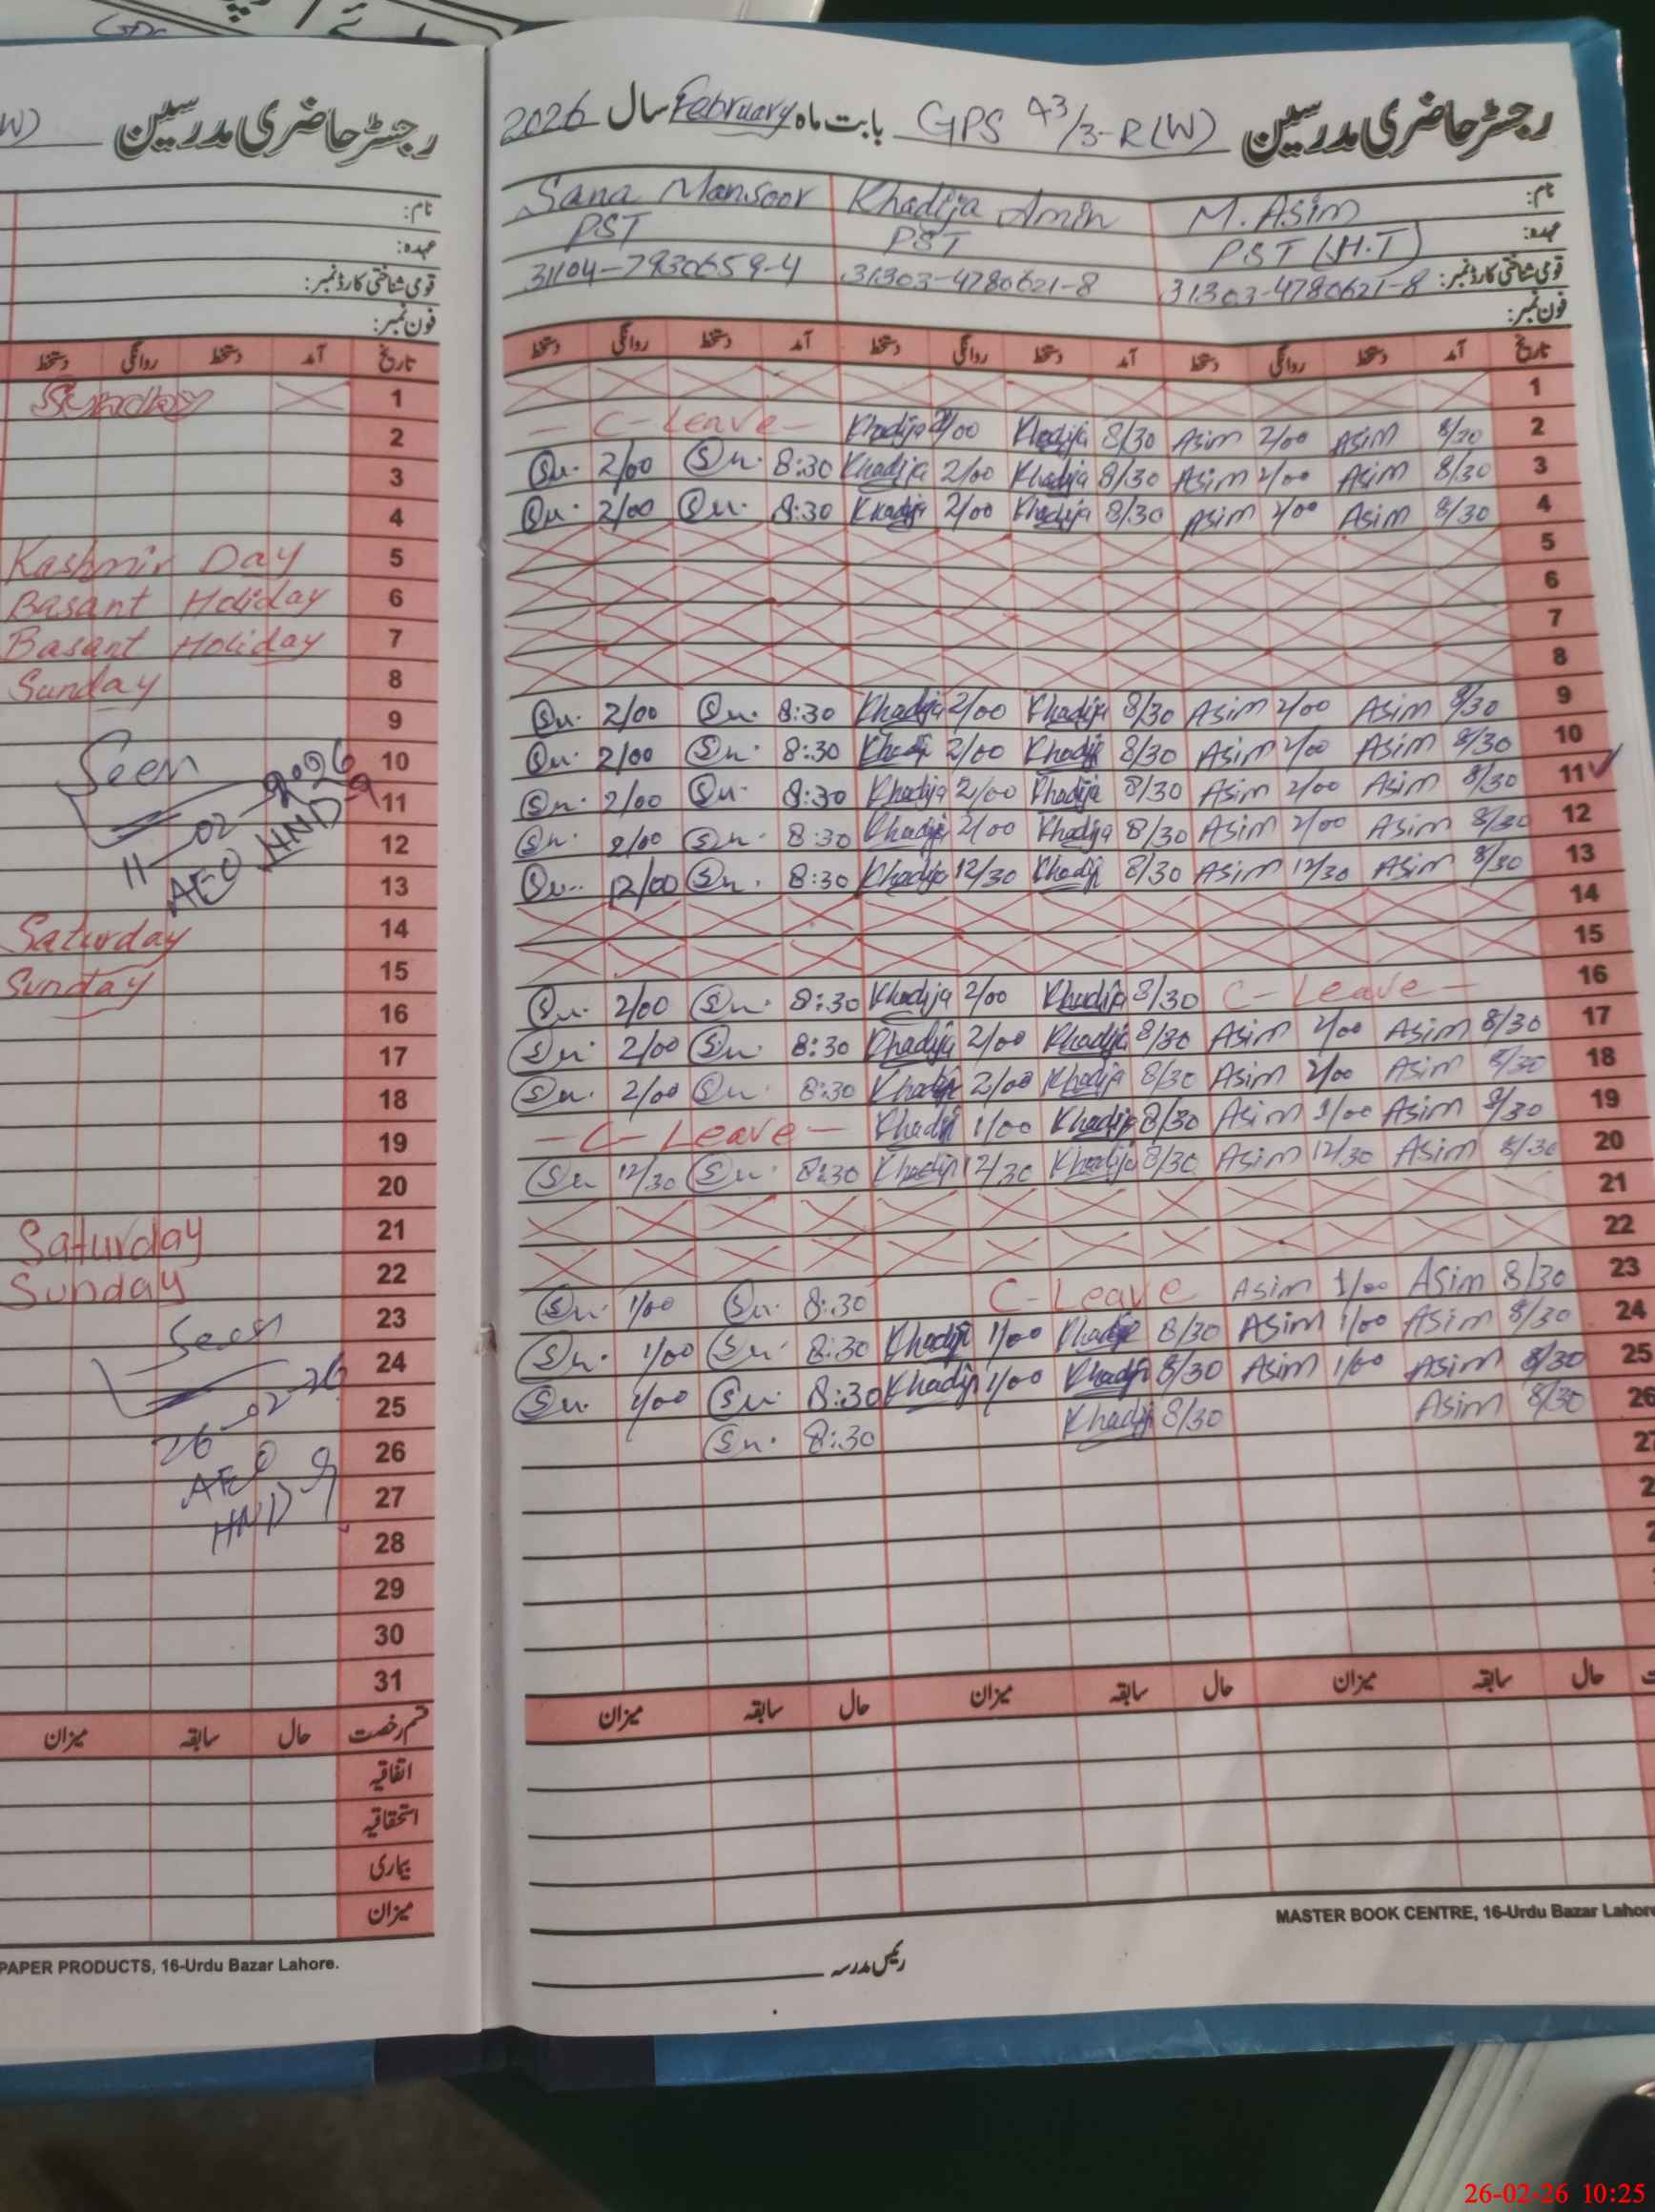 رجسٹر حاضری مدرسین
نام:
عہدہ:
قومی شناختی کارڈ نمبر:
فون نمبر:
تاریخ آمد دستخط روانگی دستخط
1 Sunday
2
3
4
5 Kashmir Day
6 Basant Holiday
7 Basant Holiday
8 Sunday
9
10 Seen
11 11-02-2026
12 AEO HND
13
14 Saturday
15 Sunday
16
17
18
19
20
21 Saturday
22 Sunday
23 Seen
24
25 26-02-26
26 AEO
27 HND
28
29
30
31
قسم رخصت حال سابقہ میزان
اتفاقیہ
استحقاقیہ
بیماری
میزان
PAPER PRODUCTS, 16-Urdu Bazar Lahore.
رجسٹر حاضری مدرسین GPS 43/3-R(W) بابت ماہ February سال 2026
نام: M. Asim Khadija Amin Sana Mansoor
عہدہ: PST (H.T) PST PST
قومی شناختی کارڈ نمبر: 31303-4780621-8 31303-4780621-8 31104-7930659-4
فون نمبر:
تاریخ آمد دستخط روانگی دستخط آمد دستخط روانگی دستخط آمد دستخط روانگی دستخط
1
- C-Leave - Khadija 2/00 Khadija 8/30 Asim 2/00 Asim 8/30 2
Sn. 2/00 Sn. 8:30 Khadija 2/00 Khadija 8/30 Asim 2/00 Asim 8/30 3
Sn. 2/00 Sn. 8:30 Khadija 2/00 Khadija 8/30 Asim 2/00 Asim 8/30 4
5
6
7
8
Sn. 2/00 Sn. 8:30 Khadija 2/00 Khadija 8/30 Asim 2/00 Asim 8/30 9
Sn. 2/00 Sn. 8:30 Khadija 2/00 Khadija 8/30 Asim 2/00 Asim 8/30 10
Sn. 2/00 Sn. 8:30 Khadija 2/00 Khadija 8/30 Asim 2/00 Asim 8/30 11
Sn. 2/00 Sn. 8:30 Khadija 2/00 Khadija 8/30 Asim 2/00 Asim 8/30 12
Sn. 12/00 Sn. 8:30 Khadija 12/30 Khadija 8/30 Asim 12/30 Asim 8/30 13
14
15
Sn. 2/00 Sn. 8:30 Khadija 2/00 Khadija 8/30 C-Leave - 16
Sn. 2/00 Sn. 8:30 Khadija 2/00 Khadija 8/30 Asim 2/00 Asim 8/30 17
Sn. 2/00 Sn. 8:30 Khadija 2/00 Khadija 8/30 Asim 2/00 Asim 8/30 18
- C-Leave - Khadija 1/00 Khadija 8/30 Asim 1/00 Asim 8/30 19
Sn 12/30 Sn. 8:30 Khadija 12/30 Khadija 8/30 Asim 12/30 Asim 8/30 20
21
22
Sn. 1/00 Sn. 8:30 C-Leave Asim 1/00 Asim 8/30 23
Sn. 1/00 Sn. 8:30 Khadija 1/00 Khadija 8/30 Asim 1/00 Asim 8/30 24
Sn. 1/00 Sn. 8:30 Khadija 1/00 Khadija 8/30 Asim 1/00 Asim 8/30 25
Sn. 8:30 Khadija 8/30 Asim 8/30 26
حال سابقہ میزان حال سابقہ میزان حال سابقہ میزان
MASTER BOOK CENTRE, 16-Urdu Bazar Lahore
رئیس مدرسہ
26-02-26 10:25